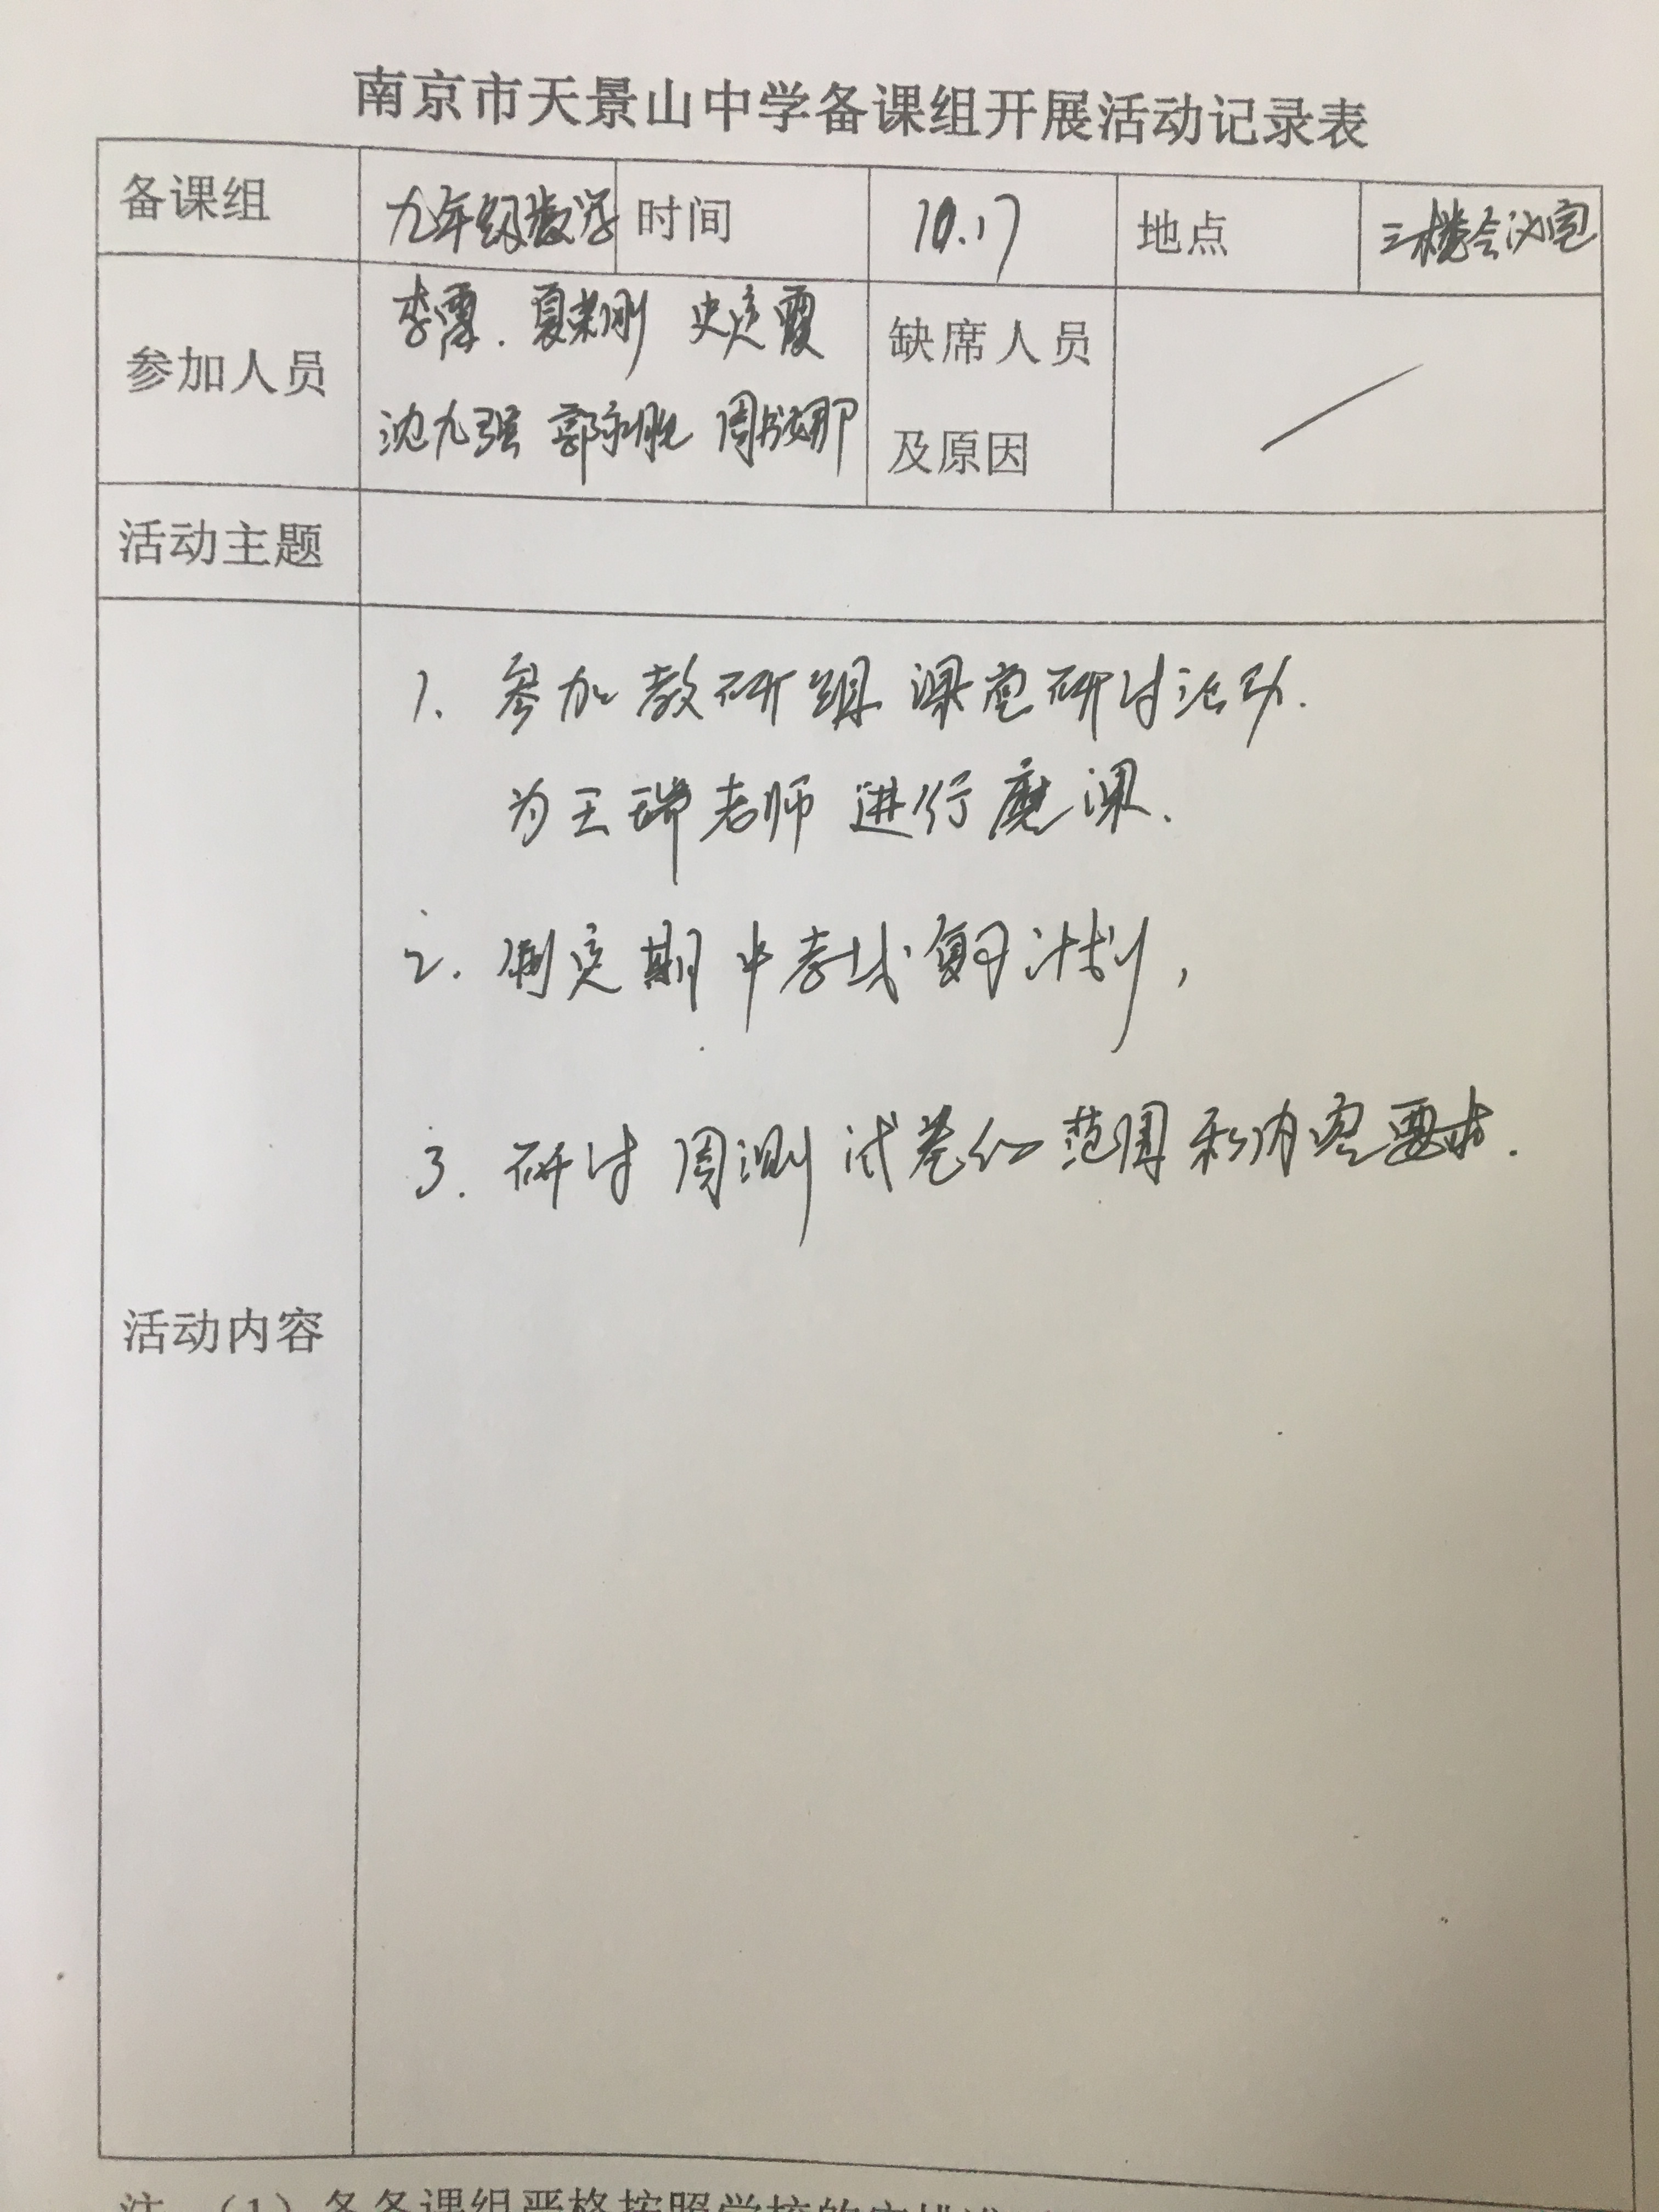 南京市天景山中学备课组开展活动记录表
备课组 九年级数学 时间 10.17 地点 三楼会议室
参加人员
李霞. 夏荣刚 史定霞
沈九强 郭利 周娜
缺席人员
及原因
活动主题
活动内容
1. 参加教研组课堂研讨活动.
为王瑞老师进行磨课.
2. 制定期中考试复习计划,
3. 研讨周测试卷的范围和内容要求.
注 (1) 各备课组严格按照学校的安排